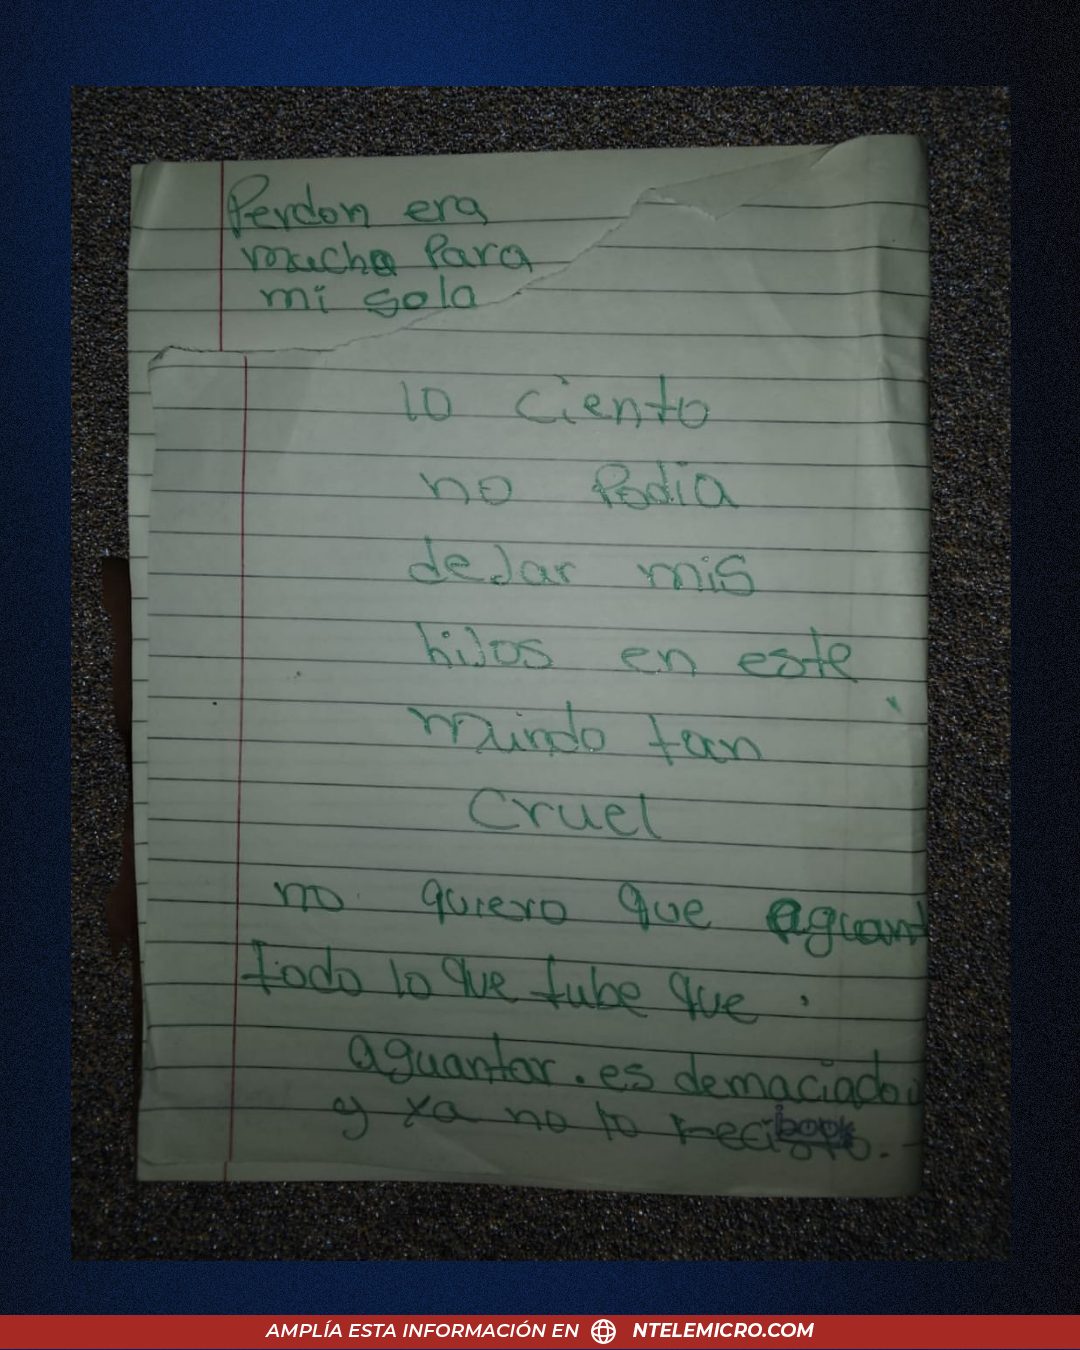 Perdon era
mucho para
mi sola
lo ciento
no Podia
dejar mis
hijos en este
mundo tan
Cruel
no quiero que aguant
todo lo que tube que
aguantar. es demaciado
y ya no lo
AMPLÍA ESTA INFORMACIÓN EN NTELEMICRO.COM